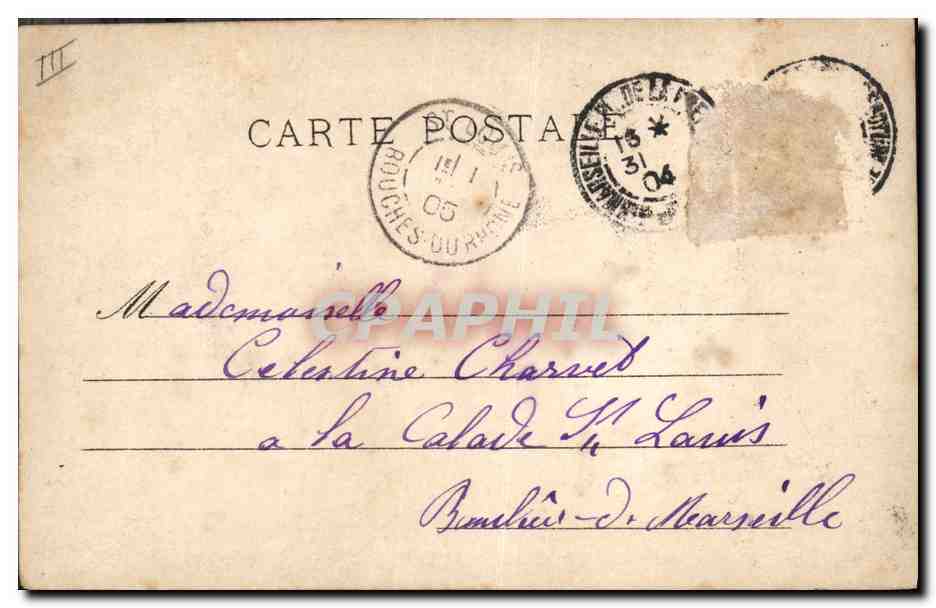 III
CARTE POSTALE
MARSEILLE DE LA
13
31
04
ST LOUIS
1
05
BOUCHES-DU-RHONE
CPAPHIL
Mademoiselle
Celestine Charvet
a la Calade St Louis
Marseille